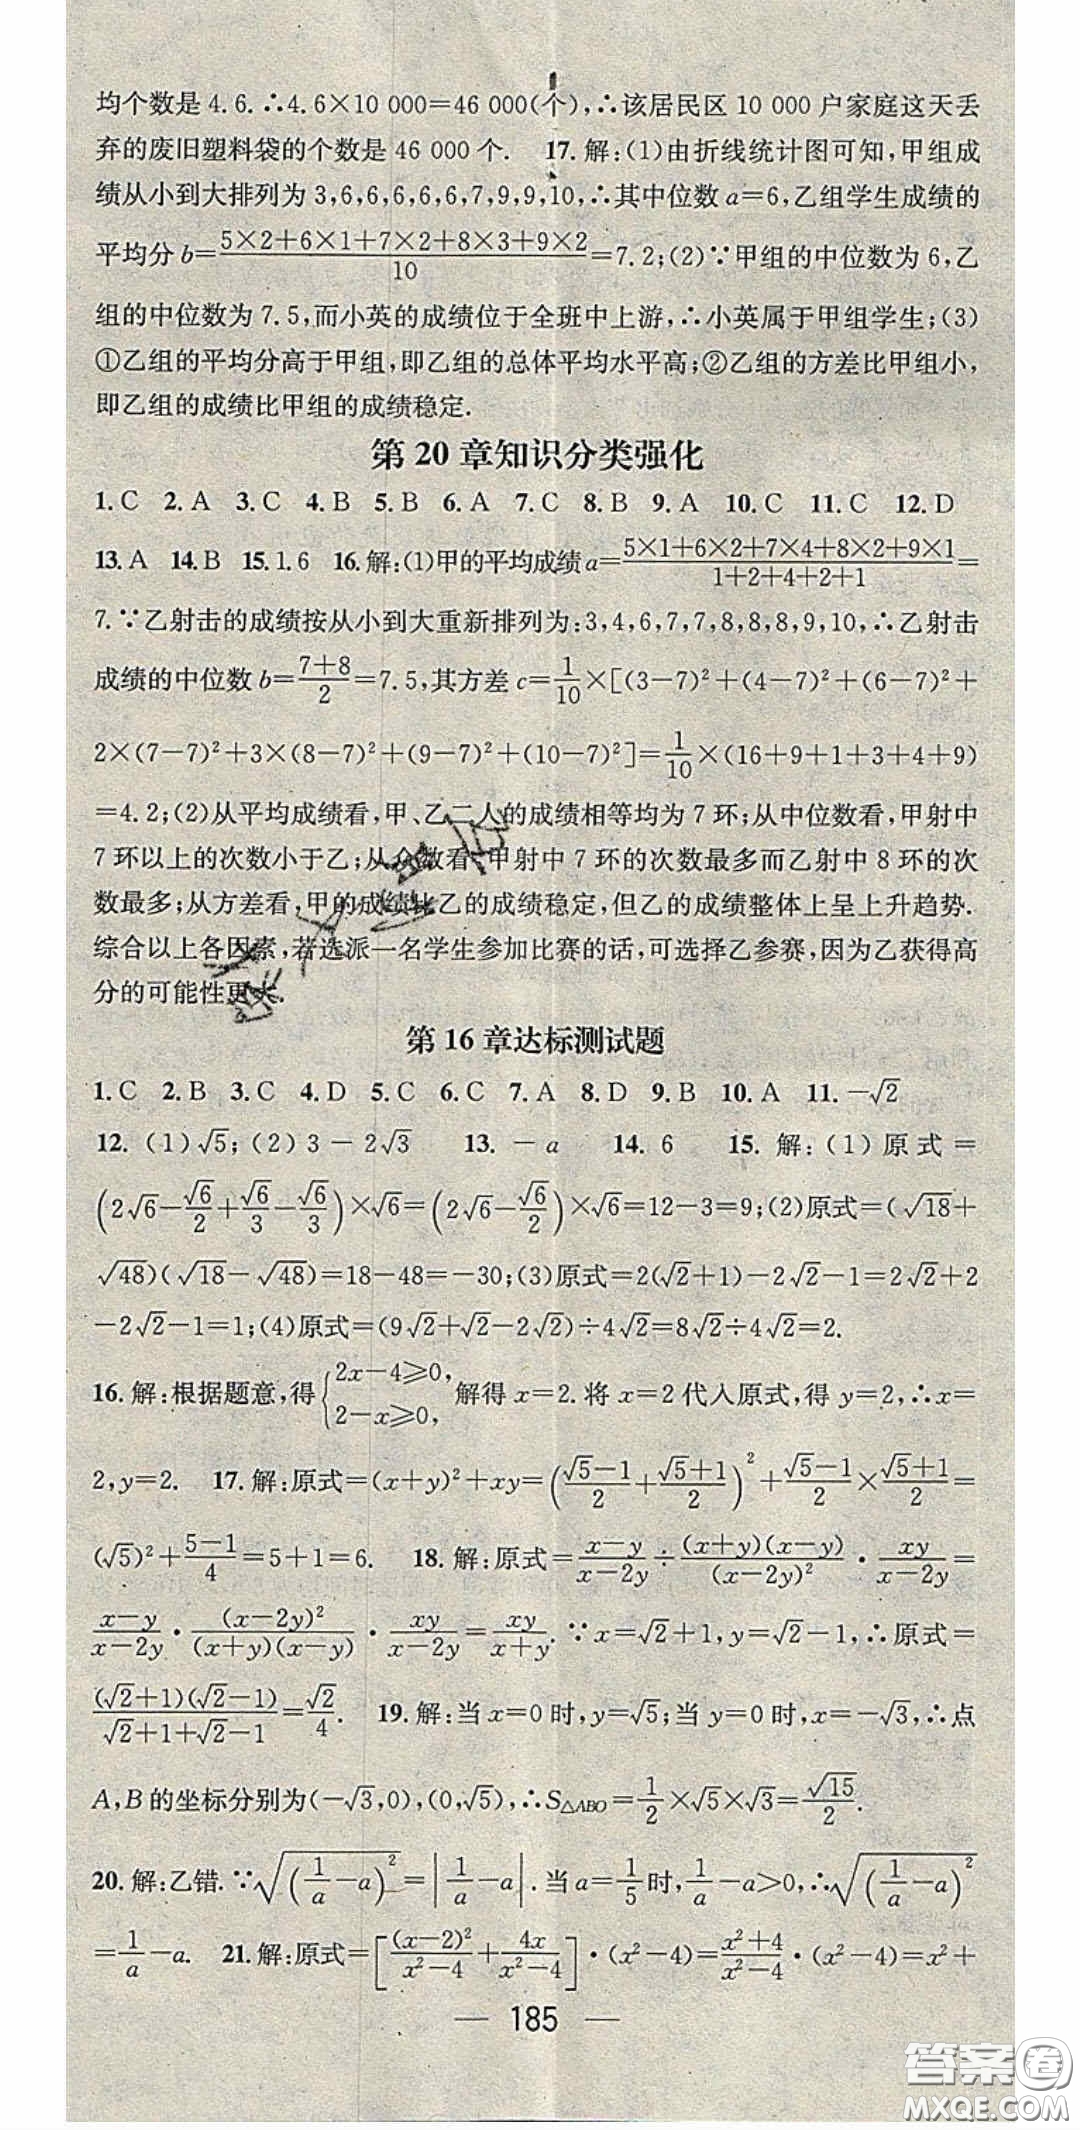 均个数是 4.6.∴4.6×10 000=46 000(个),∴该居民区 10 000 户家庭这天丢
弃的废旧塑料袋的个数是 46 000 个. 17.解:(1)由折线统计图可知,甲组成
绩从小到大排列为 3,6,6,6,6,6,7,9,9,10,∴其中位数 a=6,乙组学生成绩的
平均分 b=(5×2+6×1+7×2+8×3+9×2)/10=7.2;(2)∵甲组的中位数为 6,乙
组的中位数为 7.5,而小英的成绩位于全班中上游,∴小英属于甲组学生;(3)
①乙组的平均分高于甲组,即乙组的总体平均水平高;②乙组的方差比甲组小,
即乙组的成绩比甲组的成绩稳定.
第 20 章知识分类强化
1.C 2.A 3.C 4.B 5.B 6.A 7.C 8.B 9.A 10.C 11.C 12.D
13.A 14.B 15.1.6 16.解:(1)甲的平均成绩 a=(5×1+6×2+7×4+8×2+9×1)/(1+2+4+2+1)=
7.∵乙射击的成绩按从小到大重新排列为:3,4,6,7,7,8,8,8,9,10,∴乙射击
成绩的中位数 b=(7+8)/2=7.5,其方差 c=1/10×[(3-7)²+(4-7)²+(6-7)²+
2×(7-7)²+3×(8-7)²+(9-7)²+(10-7)²]=1/10×(16+9+1+3+4+9)
=4.2;(2)从平均成绩看,甲、乙二人的成绩相等均为 7 环;从中位数看,甲射中
7 环以上的次数小于乙;从众数看,甲射中 7 环的次数最多而乙射中 8 环的次
数最多;从方差看,甲的成绩比乙的成绩稳定,但乙的成绩整体上呈上升趋势.
综合以上各因素,若选派一名学生参加比赛的话,可选择乙参赛,因为乙获得高
分的可能性更大.
第 16 章达标测试题
1.C 2.B 3.C 4.D 5.C 6.C 7.A 8.D 9.B 10.A 11.-√2
12.(1)√5;(2)3-2√3 13.-a 14.6 15.解:(1)原式=
(2√6-√6/2+√6/3-√6/3)×√6=(2√6-√6/2)×√6=12-3=9;(2)原式=(√18+
√48)(√18-√48)=18-48=-30;(3)原式=2(√2+1)-2√2-1=2√2+2
-2√2-1=1;(4)原式=(9√2+√2-2√2)÷4√2=8√2÷4√2=2.
16.解:根据题意,得{2x-4≥0, 2-x≥0, 解得 x=2.将 x=2 代入原式,得 y=2,∴x=
2,y=2. 17.解:原式=(x+y)²+xy=((√5-1)/2+(√5+1)/2)²+(√5-1)/2×(√5+1)/2=
(√5)²+(5-1)/4=5+1=6. 18.解:原式=(x-y)/(x-2y)÷(x+y)(x-y)/(x-2y)²·xy/(x-2y)=
(x-y)/(x-2y)·(x-2y)²/(x+y)(x-y)·xy/(x-2y)=xy/(x+y).∵x=√2+1,y=√2-1,∴原式=
(√2+1)(√2-1)/(√2+1+√2-1)=√2/4. 19.解:当 x=0 时,y=√5;当 y=0 时,x=-√3,∴点
A,B 的坐标分别为(-√3,0),(0,√5),∴S△ABO=1/2×√5×√3=√15/2.
20.解:乙错.∵√((1/a-a)²)=|1/a-a|.当 a=1/5时,1/a-a>0,∴√((1/a-a)²)
=1/a-a. 21.解:原式=[(x-2)²/(x²-4)+4x/(x²-4)]·(x²-4)=(x²+4)/(x²-4)·(x²-4)=x²+
— 185 —
答案圈
MXQE.COM